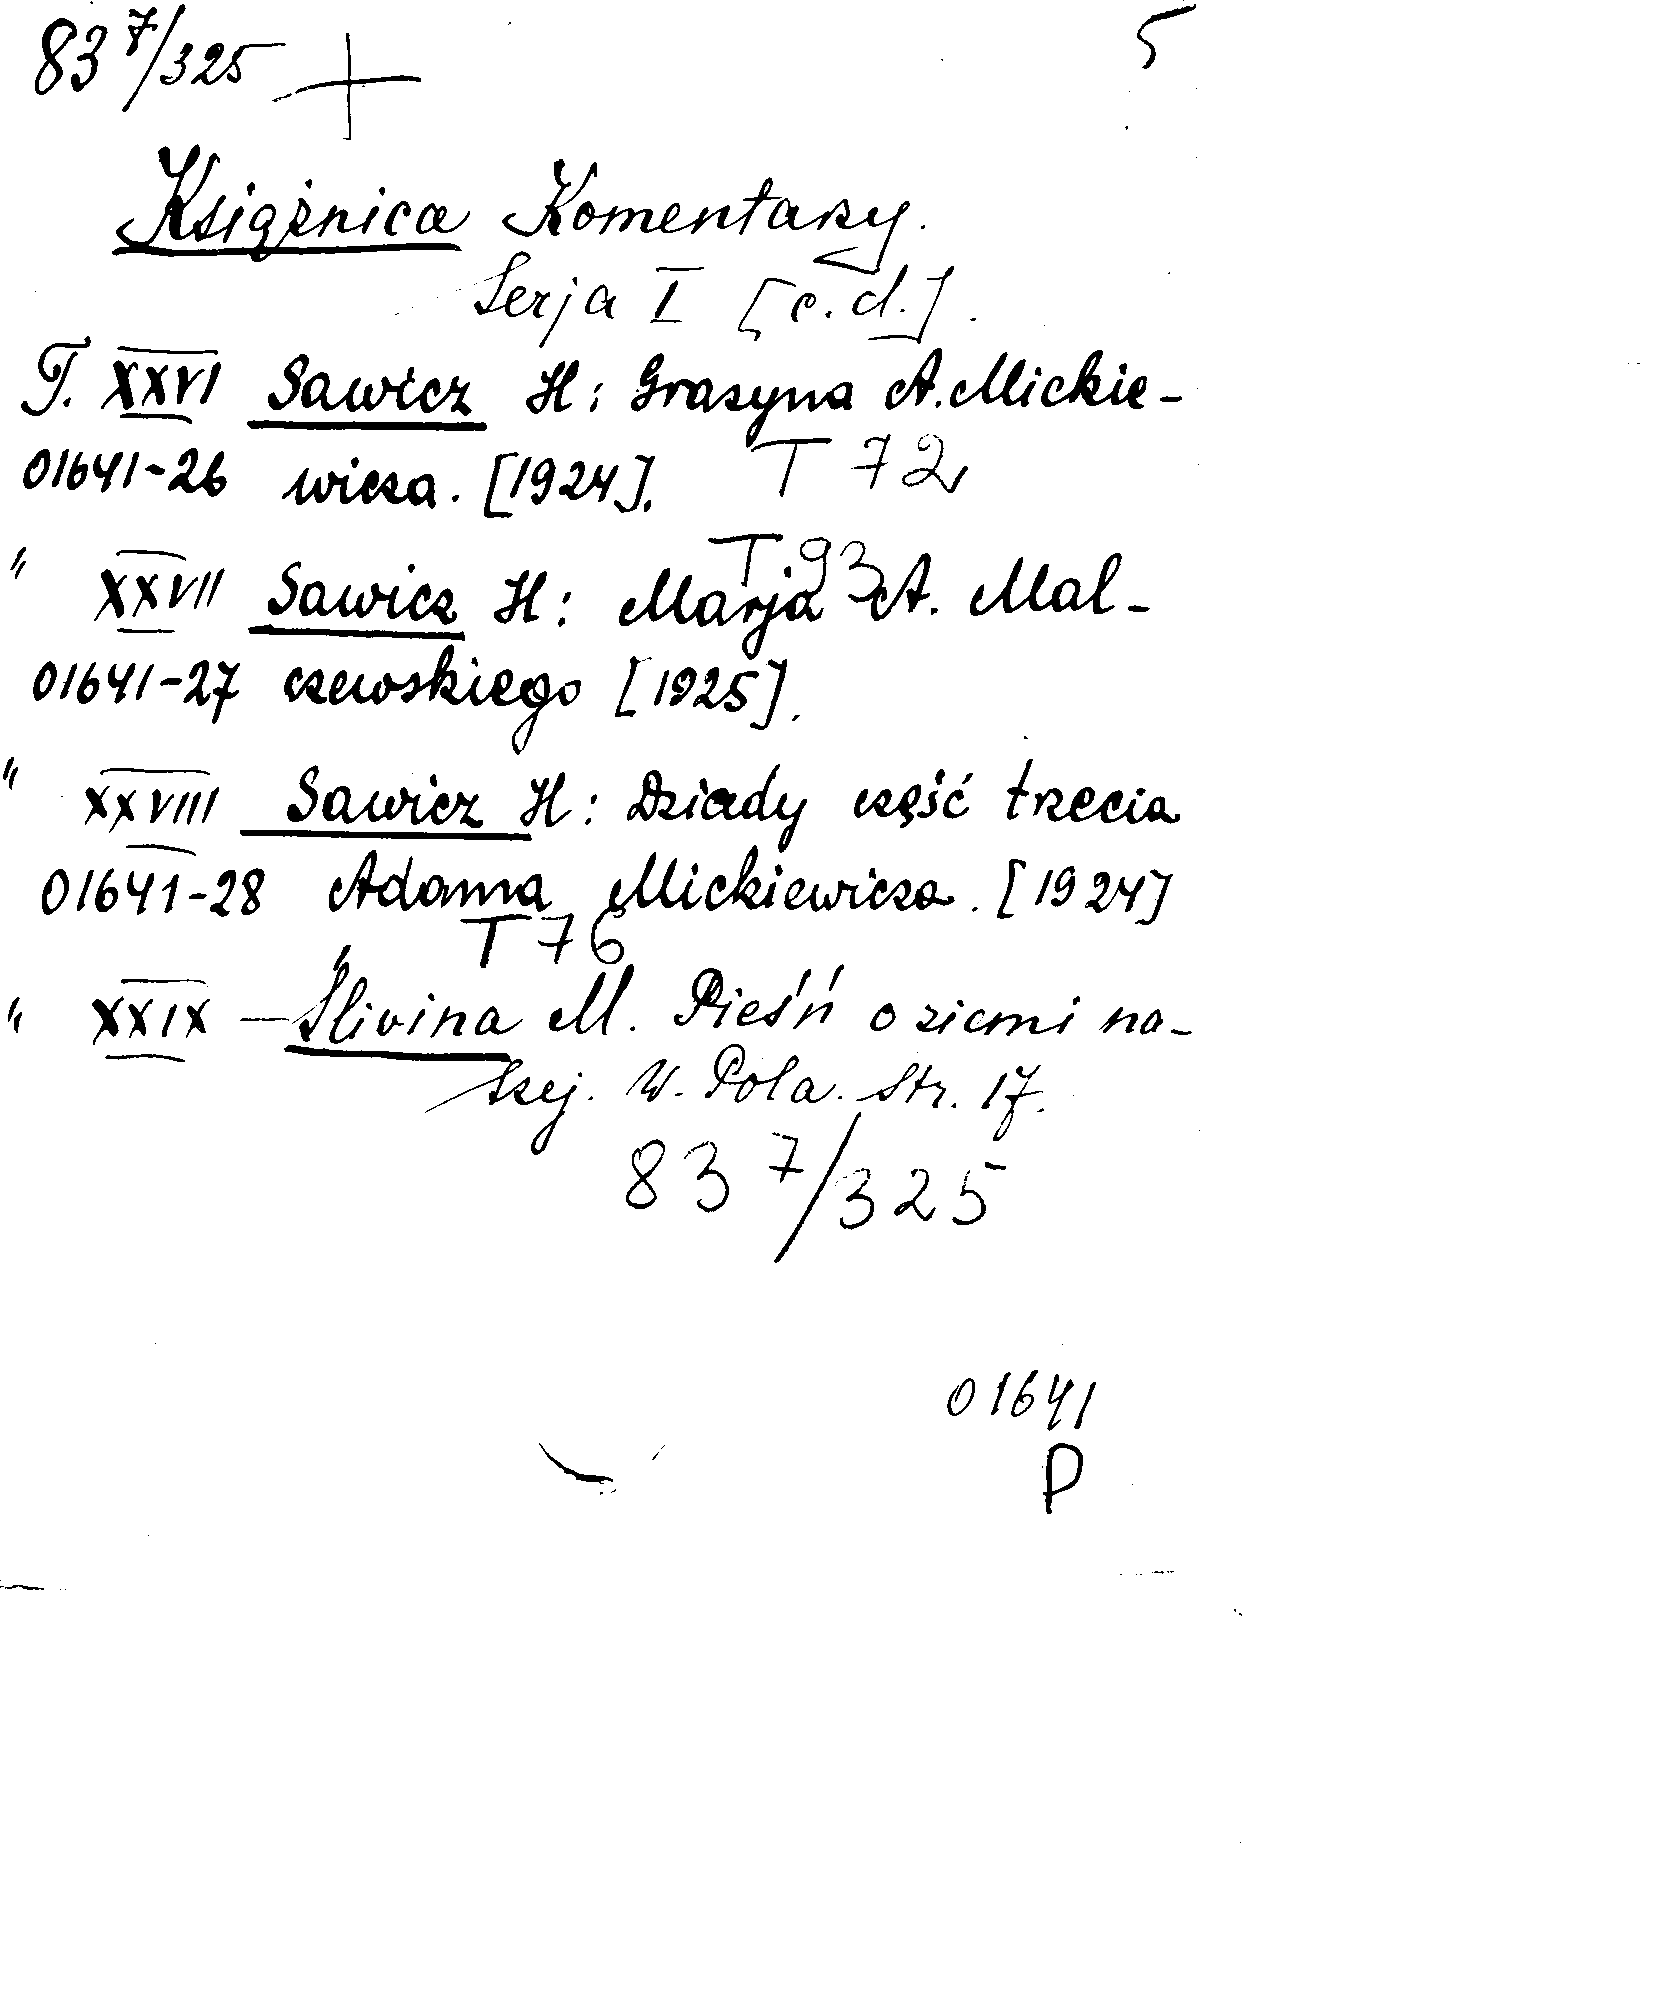 83 7/325 + 5
Książnica Komentarzy.
Serja I [c.d.].
T. XXVI Sawicz H: Grażyna A. Mickie-
01641-26 wicza. [1924]. T 72
" XXVII Sawicz H: Marja A. Mal-
T 93
01641-27 czewskiego [1925].
" XXVIII Sawicz H: Dziady część trzecia
01641-28 Adama Mickiewicza. [1924]
T 76
" XXIX - Śliwina M. Pieśń o ziemi na-
szej. W. Pola. Str. 17.
83 7/325
01641
P